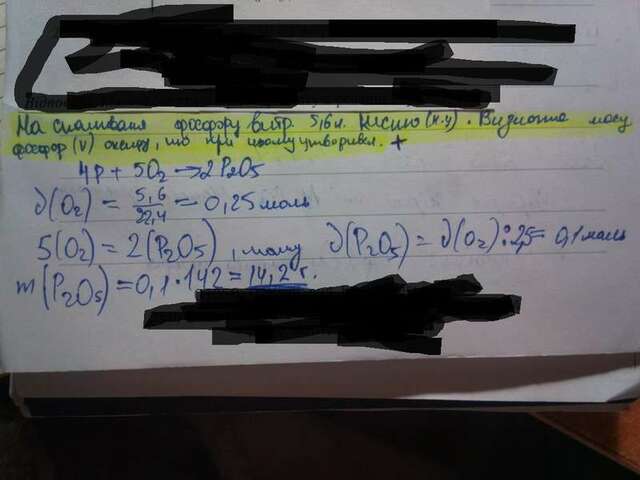 На спалювання фосфору витр. 5,6 л. кисню (н.у). Визначте масу
фосфор (V) оксиду, що при цьому утворився. +
4P + 5O₂ → 2P₂O₅
ν(O₂) = 5,6/22,4 = 0,25 моль
5(O₂) = 2(P₂O₅), тому ν(P₂O₅) = ν(O₂) : 2,5 = 0,1 моль
m(P₂O₅) = 0,1 · 142 = 14,2 г.